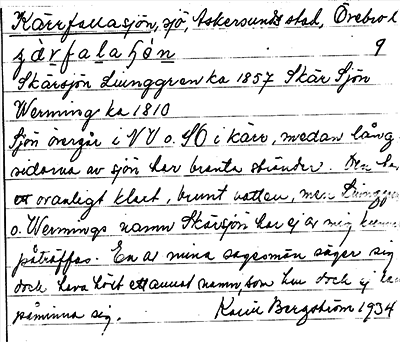 Kärrfallasjön, sjö, Askersunds stad, Örebro l
çárfalaʃɵ́n 9
Skärsjön Ljunggren ka 1857 Skär Sjön
Werming ka 1810
Sjön övergår i NV o. SO i kärr, medan lång
sidorna av sjön har branta stränder. Den ha
ovanligt klart, brunt vatten, men Ljungg
o. Wermings namn Skärsjön har ej av mig kunn
påträffas. En av mina sagesmän säger sig
dock hava hört ett annat namn, som hon dock ej
påminna sig. Karin Bergström 1934